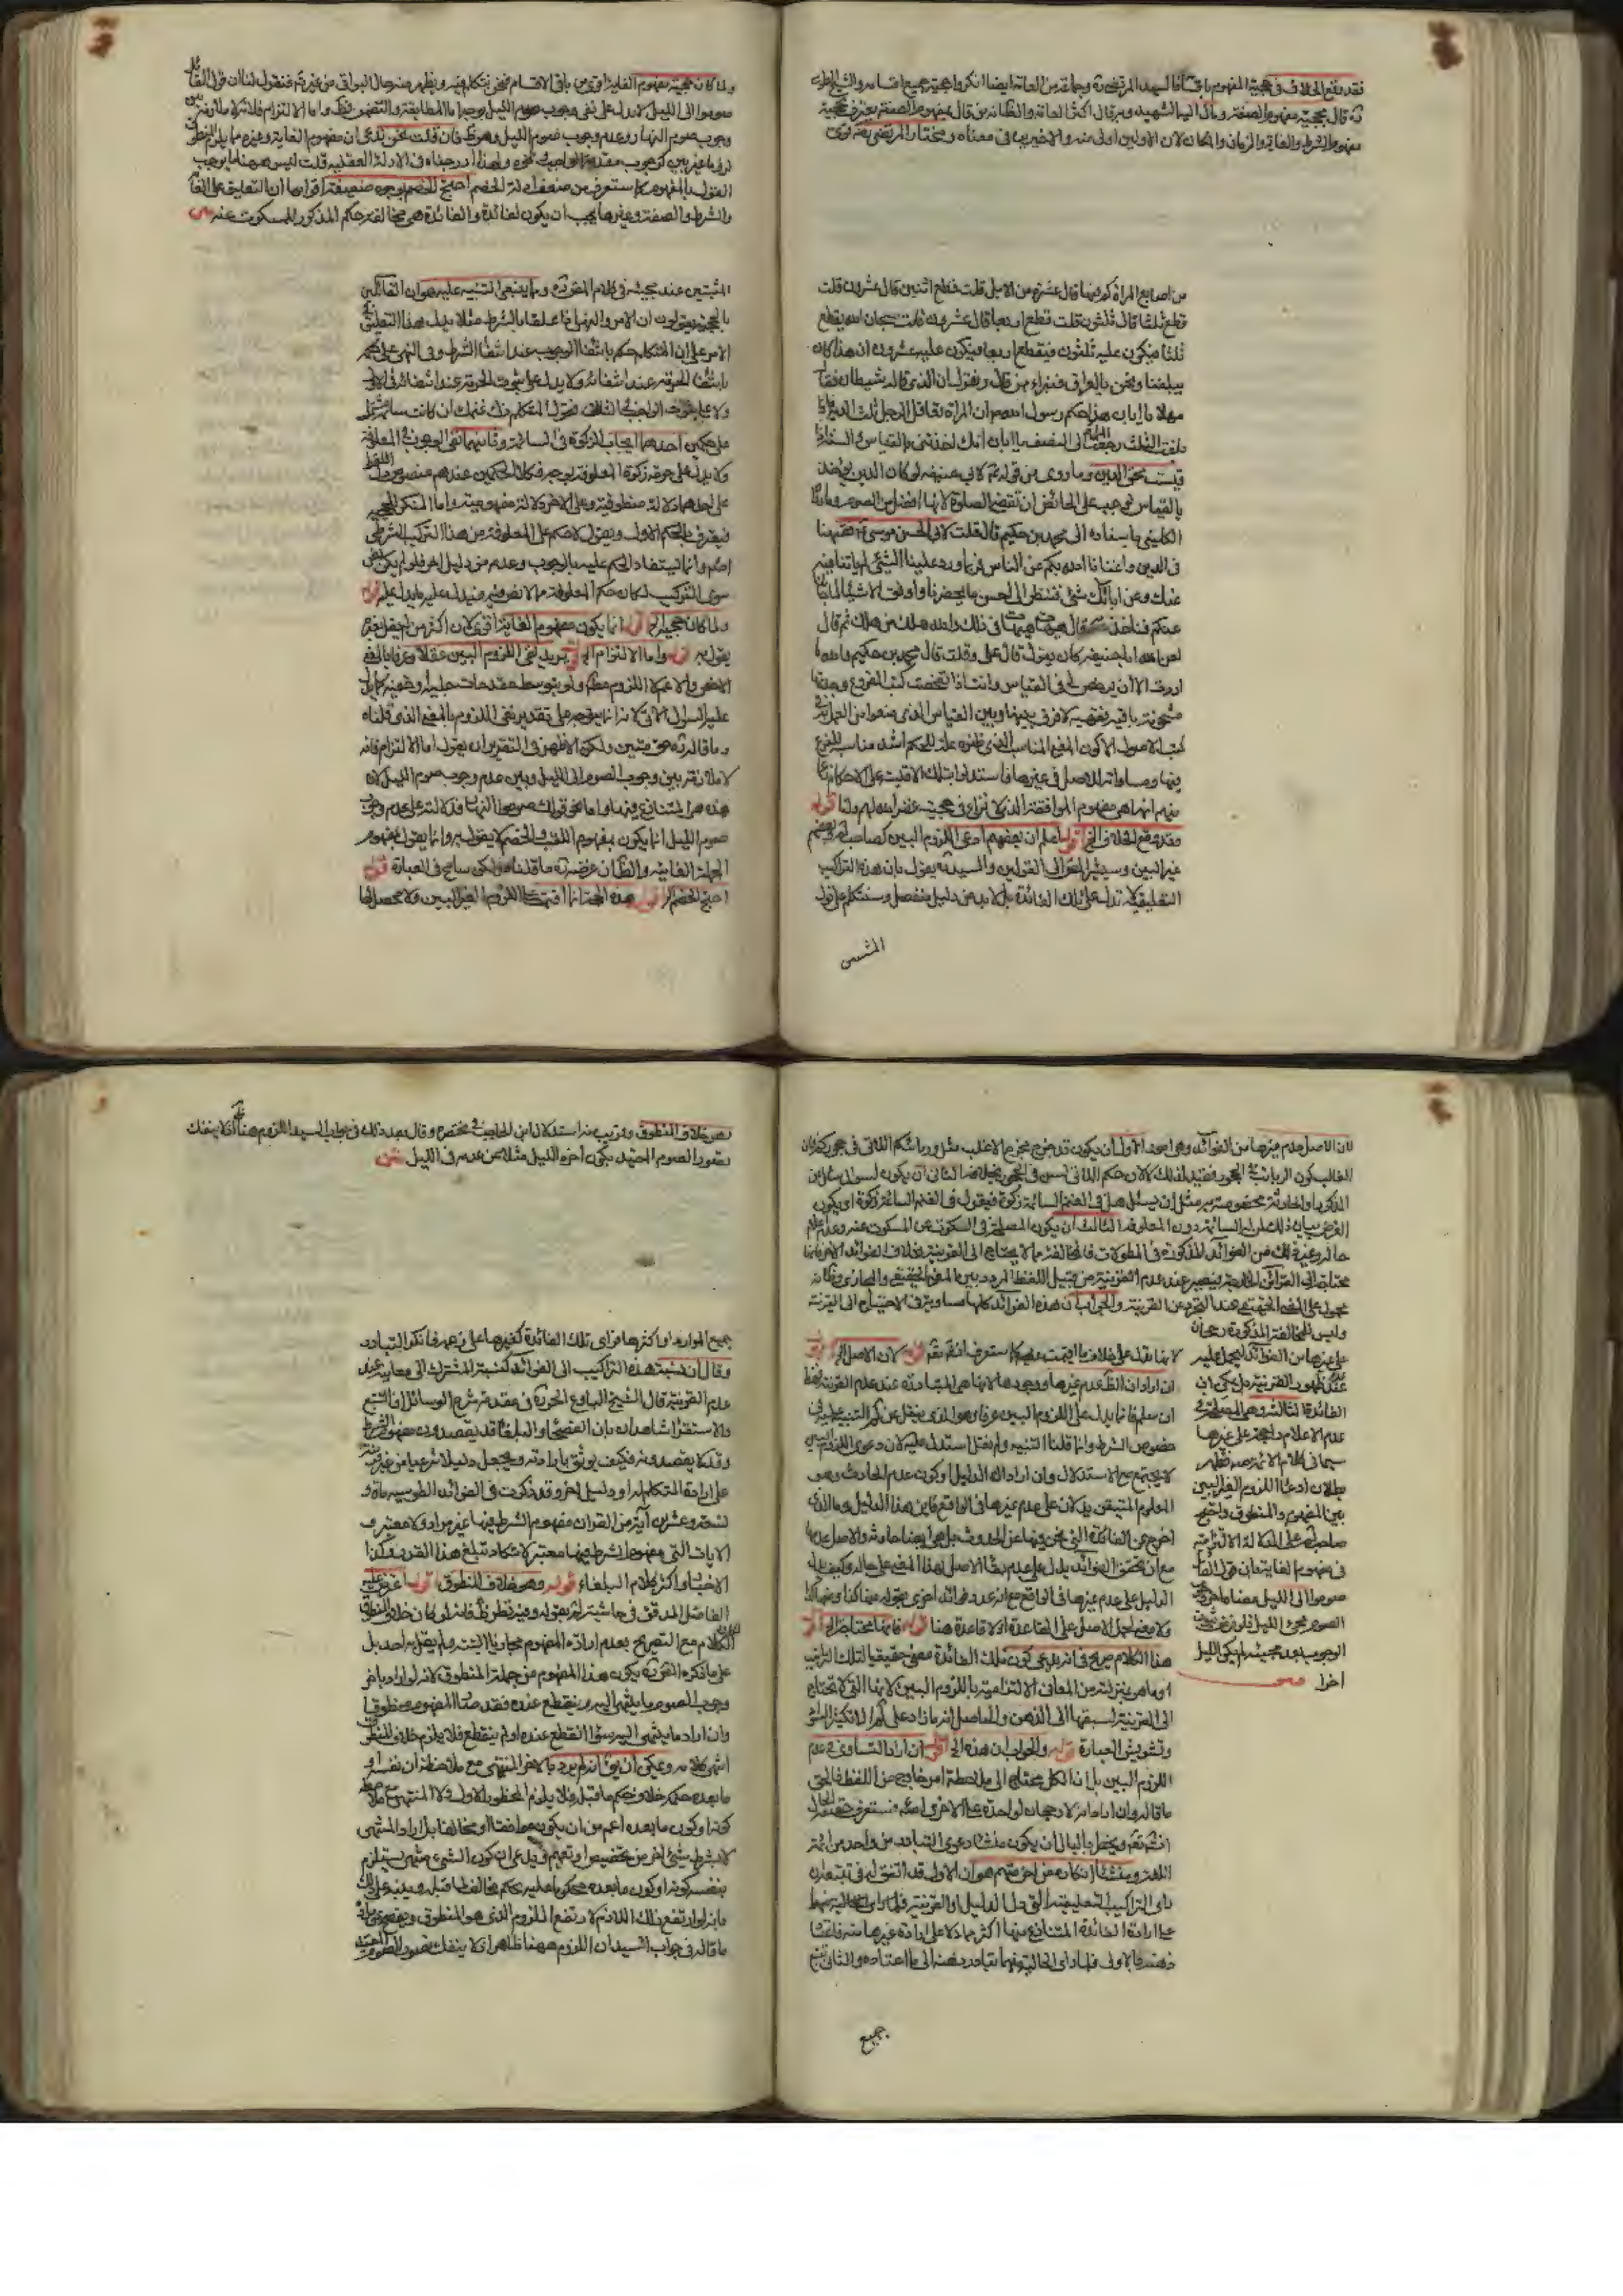 فقد وقع الخلاف في حجية المفهوم باقسامه السيد المرتضى ره وجماعة من العامة ايضا انكروا حجية جميع اقسامه والشيخ الطوسى
ره قال بحجية مفهوم الصفة ومال اليه الشهيد وبه قال اكثر العامة والظاهر من قال بمفهوم الصفة يعترف بحجية
مفهوم الشرط والغاية والزمان والمكان لان الاولين اولى منه والاخيرين في معناه ومختار المرتضى ره قوى
من اصابع المرأة كم فيها قال عشرة من الابل قلت قطع اثنين قال عشرون قلت
قطع ثلثا قال ثلثون قلت قطع اربعا قال عشرون قلت سبحان الله يقطع
ثلثا فيكون عليه ثلثون فيقطع اربعا فيكون عليه عشرون ان هذا كان
يبلغنا ونحن بالعراق فنبرء من قاله ونقول ان الذى قاله شيطان فقال
مهلا يا ابان هذا حكم رسول الله ص ان المرأة تعاقل الرجل ثلث الدية فاذا
بلغت الثلث رجعت الى النصف يا ابان انك اخذتنى بالقياس والسنة اذا
قيست محق الدين وما روى من قوله ع لابى حنيفة لو كان الدين يؤخذ
بالقياس لوجب على الحائض ان تقضى الصلوة لانها افضل من الصوم وما رواه
الكلينى باسناده الى محمد بن حكيم قال قلت لابى الحسن موسى ع فقهنا
في الدين واغنانا الله بكم عن الناس فربما ورد علينا الشيء لم ياتنا فيه
عنك وعن ابائك شيء فننظر الى احسن ما يحضرنا واوفق الاشياء لما جاءنا
عنكم فناخذ به فقال هيهات هيهات في ذلك والله هلك من هلك ثم قال
لعن الله ابا حنيفة كان يقول قال على وقلت قال محمد بن حكيم والله ما
اردت الا ان يرخص لى في القياس وانت اذا تفحصت كتب الفروع وجدتها
مشحونة باقيسة فقهية لا فرق بينها وبين القياس الذى منعوا من العمل به في
كتب الاصول الا كون المعنى المناسب الذى ظنوه علة للحكم اشد مناسبة للفرع
فيها ومساواته للاصل في غيرها فاستدلوا بتلك الاقيسة على الاحكام زعما
منهم انها هي مفهوم الموافقة الذى لا نزاع في حجيته غفر الله لهم ولنا قوله
فقد وقع الخلاف الخ اقول اعلم ان بعضهم ادعى اللزوم البين كصاحب لم وبعضهم
غير البين وسيشير المص الى القولين والسيد ره يقول بان هذه التراكيب
التعليقية لا تدل على تلك الفائدة بل لابد من دليل منفصل وسنتكلم على قول
المثبتين
ولما كان حجية مفهوم الغاية اقوى من باقى الاقسام فنحن نتكلم فيه ويظهر منه حال البواقى من غير ثم فنقول لنا ان قول القائل
صوموا الى الليل لا يدل على نفى وجوب صوم الليل بوجه اما المطابقة والتضمن فظ واما الالتزام فلانه لا ملازمة بين
وجوب صوم النهار وعدم وجوب صوم الليل وهو ظ فان قلت نحن ندعى ان مفهوم الغاية وغيره مما يلزم المنطوق
لزوما غير بين كوجوب مقدمة الواجب ونحوه ولهذا ادرجناه في الادلة العقلية قلت ليس ههنا ما يوجب
القول بالمفهوم كما ستعرف من ضعف ادلة الخصم احتج الخصم بوجوه ضعيفة اقواها ان التعليق على الغاية
والشرط والصفة وغيرها يجب ان يكون لفائدة والفائدة هي مخالفة حكم المذكور للمسكوت عنه
المثبتين عند مجيئه في كلام المص ره ومما ينبغى التنبيه عليه هو ان القائلين
بالحجية يقولون ان الامر والنهى اذا علقا بالشرط مثلا يدل هذا التعليق في
الامر على ان المتكلم حكم بانتفاء الوجوب عند انتفاء الشرط وفي النهى على حكمه
بانتفاء الحرمة عند انتفائه ولا يدل على ثبوت الحرمة عند انتفائه في الاول
ولا على ثبوت الواجب في الثانى فقول المتكلم زك غنمك ان كانت سائمة يشتمل
على حكمين احدهما ايجاب الزكوة في السائمة وثانيهما نفى الوجوب في المعلوفة
ولا يدل على حرمة زكوة المعلوفة بوجه فكلا الحكمين عندهم منصوص
على احدهما دلالة منطوقية وعلى الاخر دلالة مفهومية واما المنكر للحجية
فيعترف بالحكم الاول ويقول لا حكم على المعلوفة من هذا التركيب الشرطى
اصلا وانما يستفاد الحكم عليه بالوجوب وعدمه من دليل اخر فلو لم يكن نص
سوى التركيب لكان حكم المعلوفة مما لا نص فيه فيدل عليه ما يدل عليه قوله
ولما كان حجية الخ اقول انما يكون مفهوم الغاية اقوى لان اكثر من لم يقل بغيره
يقول به قوله واما الالتزام الخ اقول يريد نفى اللزوم البين عقلا وعرفا بالمعنى
الاخص والاعم لا اللزوم مطلقا ولو بتوسط مقدمات جلية وخفية كما يدل
عليه السؤال الاتى لانه انما يتوجه على تقدير نفى اللزوم بالمعنى الذى قلناه
وما قاله ره حق متين ولكن الاظهر في التقرير ان يقول اما الالتزام فانه
لا ملازمة بين وجوب الصوم الى الليل وبين عدم وجوب صوم الليل لان
هذه هي المتنازع فيها واما نحو قولك صوموا النهار فدلالته على عدم وجوب
صوم الليل انما يكون بمفهوم اللقب والخصم لا يقول به وانما يقول بمفهوم
الجملة الغائية والظاهر ان غرضه ره ما قلناه ولكن سامح في العبارة قوله
احتج الخصم الخ اقول هذه الحجة انما اقيمت على اللزوم الغير البين ولا محصل لها
لان الاصل عدم غيرها من الفوائد وهو اجوبة الاول ان يكون قد خرج مخرج الاغلب مثل وربائبكم اللاتى في حجوركم فان
الغالب كون الربائب في الحجور فقيد لذلك لا لان حكم اللاتى لسن في الحجور بخلافه الثانى ان يكون لسؤال سائل عن
المذكور او لحادثة مخصوصة به مثل ان يسئل هل في الغنم السائمة زكوة فيقول في الغنم السائمة زكوة او يكون
الغرض بيان ذلك لمن له السائمة دون المعلوفة الثالث ان يكون المصلحة في السكوت عن المسكوت عنه وعدم اعلام
حاله وغير ذلك من الفوائد المذكورة في المطولات فالمخالفة مما لا يحتاج الى القرينة بخلاف الفوائد الاخر فانها
محتاجة الى القرائن الخارجة فيصير عند عدم القرينة من قبيل اللفظ المردد بين المعنى الحقيقى والمجازى فكما انه
محمول على المعنى الحقيقى عند التجرد عن القرينة والجواب ان هذه الفوائد كلها مساوية في الاحتياج الى القرينة
وليس للمخالفة المذكورة رجحان
على غيرها من الفوائد ليحمل عليه
عند عدم ظهور القرينة بل يمكن ان
الفائدة الثالثة وهي المصلحة في
عدم الاعلام راجحة على غيرها
سيما في كلام الائمة ع فظهر
بطلان ادعاء اللزوم الغير البين
بين المفهوم والمنطوق واحتج
صاحب لم على الدلالة الالتزامية
في مفهوم الغاية بان قول القائل
صوموا الى الليل معناه اخر وجوب
الصوم مجئ الليل فلو فرض ثبوت
الوجوب بعد مجيئه لم يكن الليل
اخرا
لانها تدل على خلاف ما اقيمت عليه كما ستعرف انشاء الله تعالى قوله لان الاصل الخ اقول
ان اراد ان الظ عدم غيرها ووجودها لانها هي المتبادرة عند عدم القرينة فهذا
ان سلم فانما يدل على اللزوم البين عرفا وهو الذى ينقل عنه كما التنبيه عليه في
خصوص الشرط وانما قلنا التنبيه ولم نقل استدل عليه لان دعوى اللزوم البين
لا يجتمع مع الاستدلال وان اراد ان الدليل وكون عدم الحادث وهو
المعلوم المتيقن يدلان على عدم غيرها في الواقع فاين هذا الدليل وما الذى
اخرج عن الفائدة التي نحن فيها عن الحدوث بل هي ايضا حادثة والاصل عدمها
مع ان تحقق الفوائد يدل على عدم بقاء الاصل لهذا المعنى على حاله وكيف يدل
الدليل على عدم غيرها في الواقع
ولا معنى لحمل الاصل على القاعدة اذ لا قاعدة هنا قوله فانها محتاجة الخ اقول
هذا الكلام صريح في انه يدعى كون تلك الفائدة معنى حقيقيا لتلك التراكيب
او ما هي بمنزلته من المعانى الالتزامية باللزوم البين لانها التي لا تحتاج
الى القرينة لسبقها الى الذهن والحاصل انه ما زاد على الا تكثير السؤال
وتشويش العبارة قوله والجواب ان هذه الخ اقول ان اراد التساوى في عدم
اللزوم البين بل ان الكل محتاج الى ملاحظة امر خارج من اللفظ فالحق
ما قاله وان اراد انه لا رجحان لواحدة على الاخرى اصلا فستعرف حقيقة الحال
انشاء الله تعالى ويخطر بالبال ان يكون منشاء دعوى التبادر من واحد من ائمة
اللغة ومنشاء انكاره من اخر منهم هو ان الاول قد اتفق له في تتبعه ان
راى التراكيب التعليقية التي دل الدليل او القرينة
على ارادة الفائدة المتنازع فيها اكثر مما دل على ارادة غيرها منه فاعتاد
ذهنه بالاولى فلما راى الخالية منهما تبادر ذهنه الى ما اعتاده والثانى تتبع
جميع
نص خلاف المنطوق وقريب منه استدلال ابن الحاجب في مختصره وقال بعد ذلك في جواب السيد اللزوم هنا ظ اذ لا ينفك
تصور الصوم المقيد بكون اخره الليل مثلا عن عدمه في الليل
جميع الموارد او اكثرها فراى تلك الفائدة كغيرها على زعمه فانكر التبادر
وقال ان نسبة هذه التراكيب الى الفوائد كنسبة المشترك الى معانيه عند
عدم القرينة قال الشيخ البارع الحر ره في مقدمة شرح الوسائل ان التتبع
والاستقراء شاهدان بان الفصحاء والبلغاء قد يقصدون مفهوم الشرط
وقد لا يقصدونه فكيف يوثق بارادته ويجعل دليلا شرعيا من غير قرينة
على ارادة المتكلم له او دليل اخر وقد ذكرت في الفوائد الطوسية مائة و
تسعة وعشرين آية من القران مفهوم الشرط فيها غير مراد ولا معتبر و
الايات التي مفهوم الشرط فيها معتبر لا تكاد تبلغ هذا القدر وكذا
الاخبار واكثر كلام البلغاء قوله وهو خلاف المنطوق اقول اعترض عليه
الفاضل المدقق في حاشيته بقوله وفيه نظر ظ فانه لو كان خلاف المنطوق
لكان الكلام مع التصريح بعدم ارادة المفهوم مجازيا البتة ولم يقل به احد بل
على ما ذكره المص ره يكون هذا المفهوم من جملة المنطوق لانه لو اراد باخر
وجوب الصوم ما ينتهى اليه وينقطع عنده فقد صار المفهوم منطوقا
وان اراد ما ينتهى اليه سواء انقطع عنده او لم ينقطع فلا يلزم خلاف المنطوق
انتهى كلامه ويمكن ان يق انه لم يرد بالاخر المنتهى مع ملاحظة ان نفسه او
ما بعده حكمه خلاف حكم ما قبله فلا يلزم المحظور الاول ولا المنتهى مع ملاحظة
كونه او كون ما بعده اعم من ان يكون موافقا او مخالفا بل اراد المنتهى
لا بشرط شيء اخر من تخصيص او تعميم
بنفسه كونه او كون ما بعده محكوما عليه بحكم مخالف لما قبله وينبه على ذلك
بانه لو ارتفع ذلك اللازم لارتفع الملزوم الذى هو المنطوق
ما قاله في جواب السيد ان اللزوم ههنا ظاهر اذ لا ينفك تصور الصوم المقيد